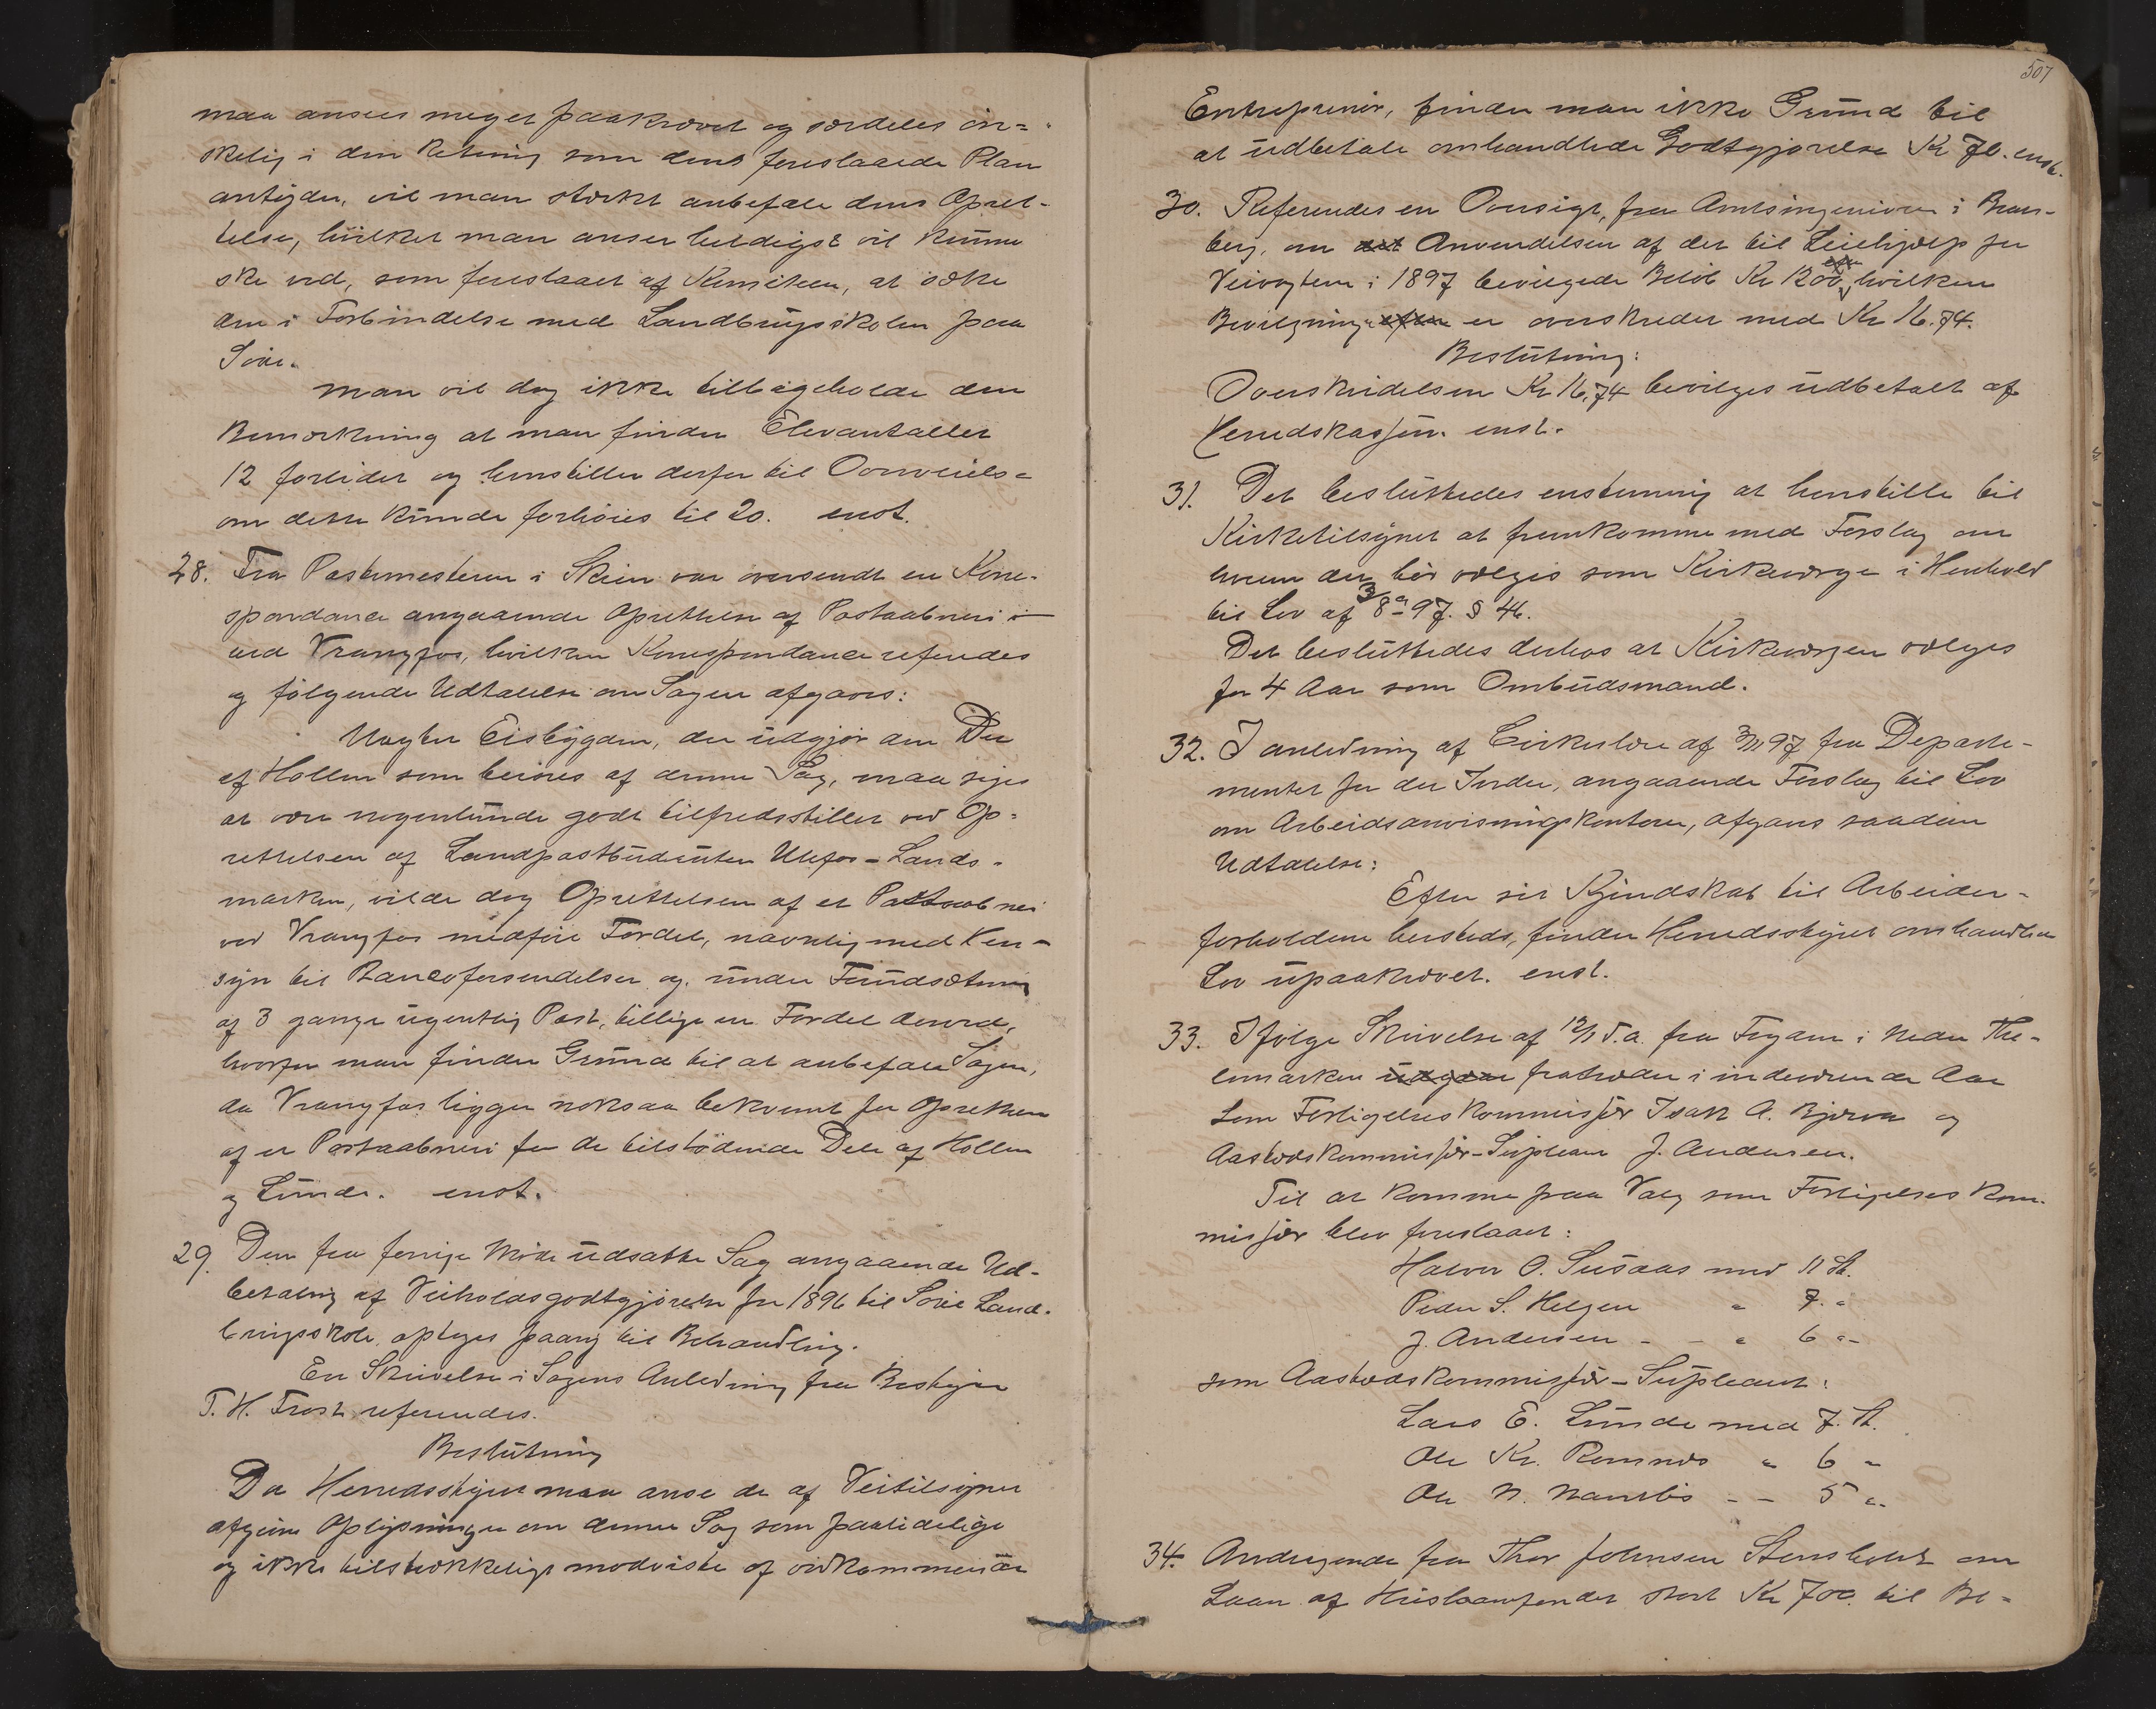 maa ansees meget paakrævet og særdeles øn=
skelig i den Retning som dens foreslaaede Plan
antyder, vil man stærkt anbefale dens Opret-
telse, hvilket man anser heldigst vil kunne
ske ved, som foreslaaet af Komiteen, at søke
den i Forbindelse med Landbrugsskolen paa
Søve.
Man vil dog ikke tilbageholde den
Bemærkning at man finder Elevantallet
12 forlidet og henstiller derfor til Overveielse
om dette kunde forhøies til 20. enst.
28. Fra Postmesteren i Skien var oversendt en Korre-
spondance angaaende Oprettelse af Postaabneri
ved Vrangfos, hvilken Korrespondance referedes
og følgende Udtalelse om Sagen afgaves:
Uagtet Eisbygden, der udgjør den Del
af Hollen som berøres af denne Sag, maa siges
at være nogenlunde godt tilfredsstillet ved Op=
rettelsen af Landpostbudruten Ulefos-Lands-
marken, vilde dog Oprettelsen af et Postaabneri
ved Vrangfos medføre Fordel, navnlig med Hen-
syn til Bancoforsendelser og under Forudsætning
af 3 gange ugentlig Post, tillige en Fordel derved,
hvorfor man finder Grund til at anbefale Sagen,
da Vrangfos ligger noksaa bekvemt for Oprettelsen
af et Postaabneri for de tilstødende Dele af Hollen
og Lunde. enst.
29. Den fra forrige Møde udsatte Sag angaaende Ud-
betaling af Veiholdsgodtgjørelse for 1896 til Søve Land-
brugsskole optoges paany til Behandling.
En Skrivelse i Sagens Anledning fra Bestyrer
T. H. Frost referedes.
Beslutning
Da Herredsstyret maa anse de af Veitilsynet
afgivne Oplysninger om denne Sag som paalidelige
og ikke tilstrækkelige modviste af vedkommende
507
Entreprenør, finder man ikke Grund til
at udbetale omhandlede Godtgjørelse Kr 70. enst.
30. Referedes en Oversigt, fra Amtsingeniøren i Brats-
berg, om Anvendelsen af det til Leiehjælp for
Veivogtere i 1897 bevilgede Beløb Kr 1200, hvilken
Bevilgning er overskredet med Kr 16.74.
Beslutning:
Overskridelsen Kr 16,74 bevilges udbetalt af
Herredskassen. enst.
31. Det besluttedes enstemmig at henstille til
Kirketilsynet at fremkomme med Forslag om
hvem der bør vælges som Kirkeværge i Henhold
til Lov af 3/8 97. § 46.
Det besluttedes derhos at Kirkeværgen vælges
for 4 Aar som Ombudsmand.
32. I anledning af Cirkulære af 3/11 97 fra Departe-
mentet for det Indre, angaaende Forslag til Lov
om Arbeidsanvisningskontorer, afgaves saadan
Udtalelse:
Efter sit Kjendskab til Arbeider-
forholdene hersteds, finder Herredsstyret omhandlede
Lov upaakrævet. enst.
33. Ifølge Skrivelse af 12/1 d.a. fra Fogden i Nedre The-
lemarken fratræder i indeværende Aar
som Forligelseskommissær Isak A. Bjerva og
Aastedskommissær-Supleant J. Andersen.
Til at komme paa Valg som Forligelseskom-
missær blev foreslaaet:
Halvor O. Susaas med 11 St.
Peder S. Helgen " 7. "
J. Andersen - - " 6 "
som Aastedskommissær-Supleant:
Lars E. Lunde med 7. St.
Ole Kr. Romnes " 6 "
Ole N. - - 5 "
34. Andragende fra Thor Johnsen Stensholt om
Laan af Huslaanfondet stort Kr 700. til Be-